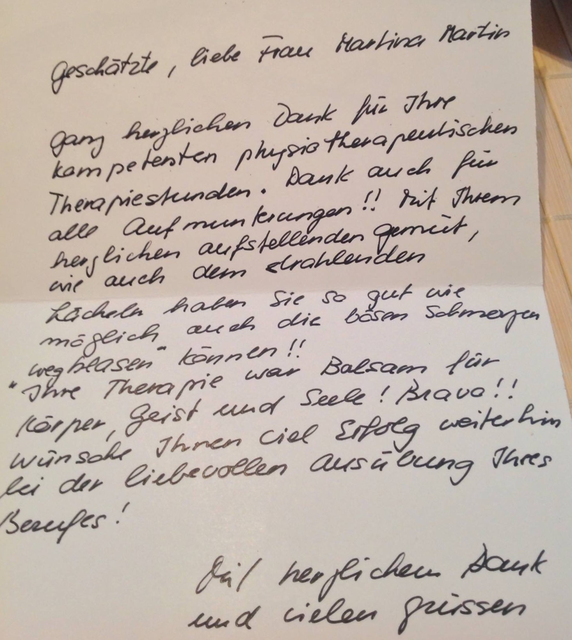 Geschätzte, liebe Frau Martina Martin
Ganz herzlichen Dank für Ihre
kompetenten physiotherapeutischen
Therapiestunden. Dank auch für
alle Aufmunterungen!! Mit Ihrem
herzlichen aufstellenden gemüt,
wie auch dem strahlenden
Lächeln haben Sie so gut wie
möglich auch die bösen Schmerzen
"wegblasen" können!!
Ihre Therapie war Balsam für
Körper, Geist und Seele! Bravo!!
Wünsche Ihnen viel Erfolg weiterhin
bei der liebevollen Ausübung Ihres
Berufes!
Mit herzlichem Dank
und vielen grüssen